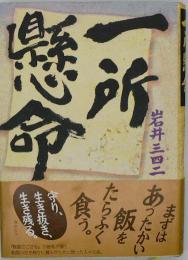 一所
懸命
岩井三四二
まずは
あったかい
飯を
たらふく
食う。
守り、
生き抜き、
生き残る。